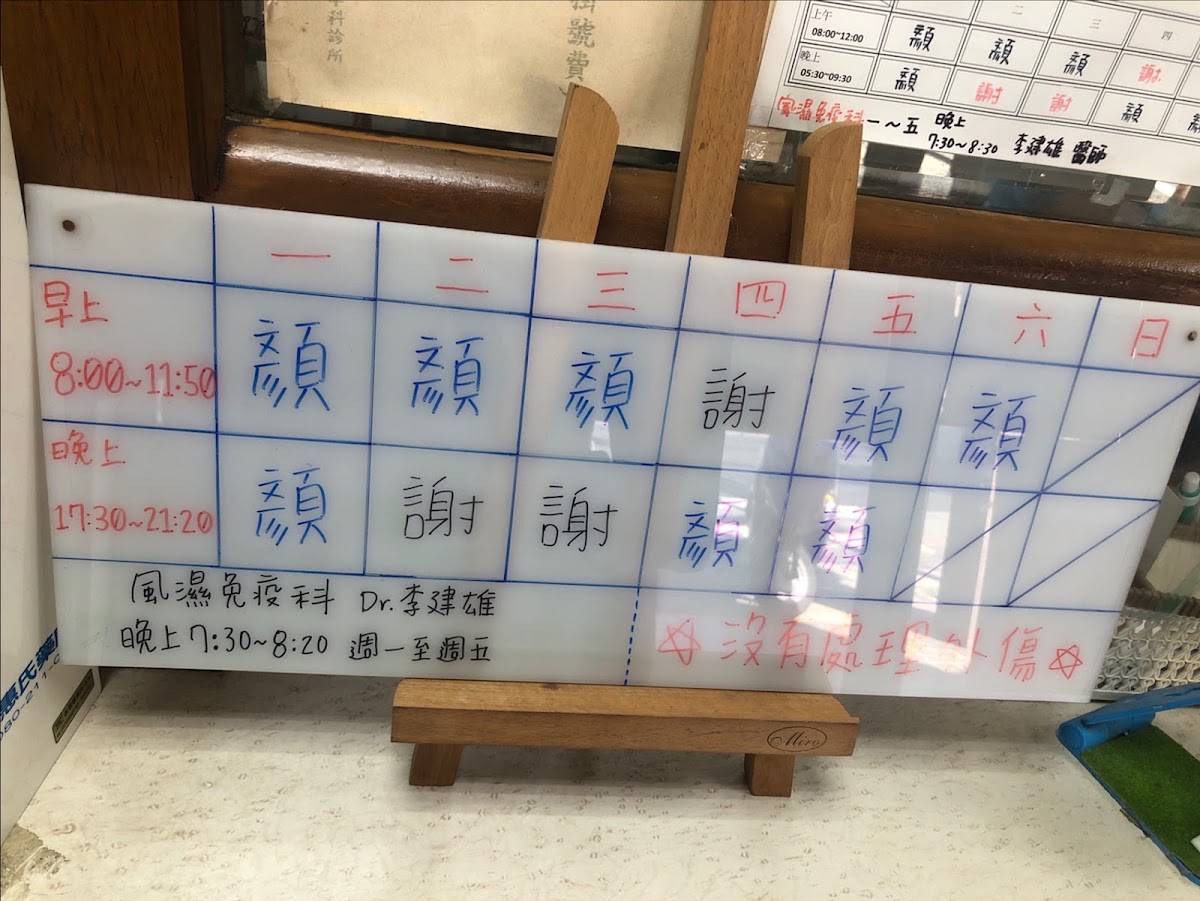 科診所
掛號費
二 三 四
上午
08:00~12:00 顏 顏 顏 謝
晚上
05:30~09:30 顏 謝 謝 顏 顏
風濕免疫科 一~五 晚上
7:30~8:30 李建雄 醫師
一 二 三 四 五 六 日
早上
8:00~11:50 顏 顏 顏 謝 顏 顏
晚上
17:30~21:20 顏 謝 謝 顏 顏
風濕免疫科 Dr.李建雄
晚上7:30~8:20 週一至週五
☆沒有處理外傷☆
Miro